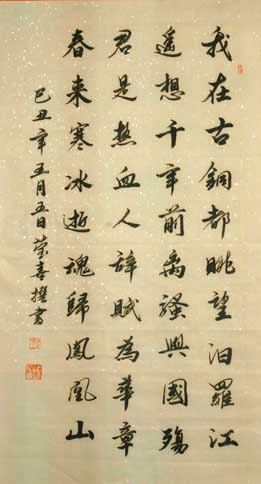 我在古銅都眺望汨羅江
遥想千年前离騷與國殤
君是熱血人辞賦為華章
春来寒冰逝魂歸鳳凰山
己丑年五月五日荣喜撰書